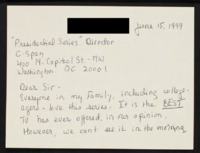 June 15, 1999
"Presidential Series" Director
C-Span
400 N. Capitol St. - NW
Washington DC 20001
Dear Sir -
Everyone in my family, including college-
agers - love this series. It is the BEST
TV has ever offered, in our opinion.
However, we can't see it in the morning